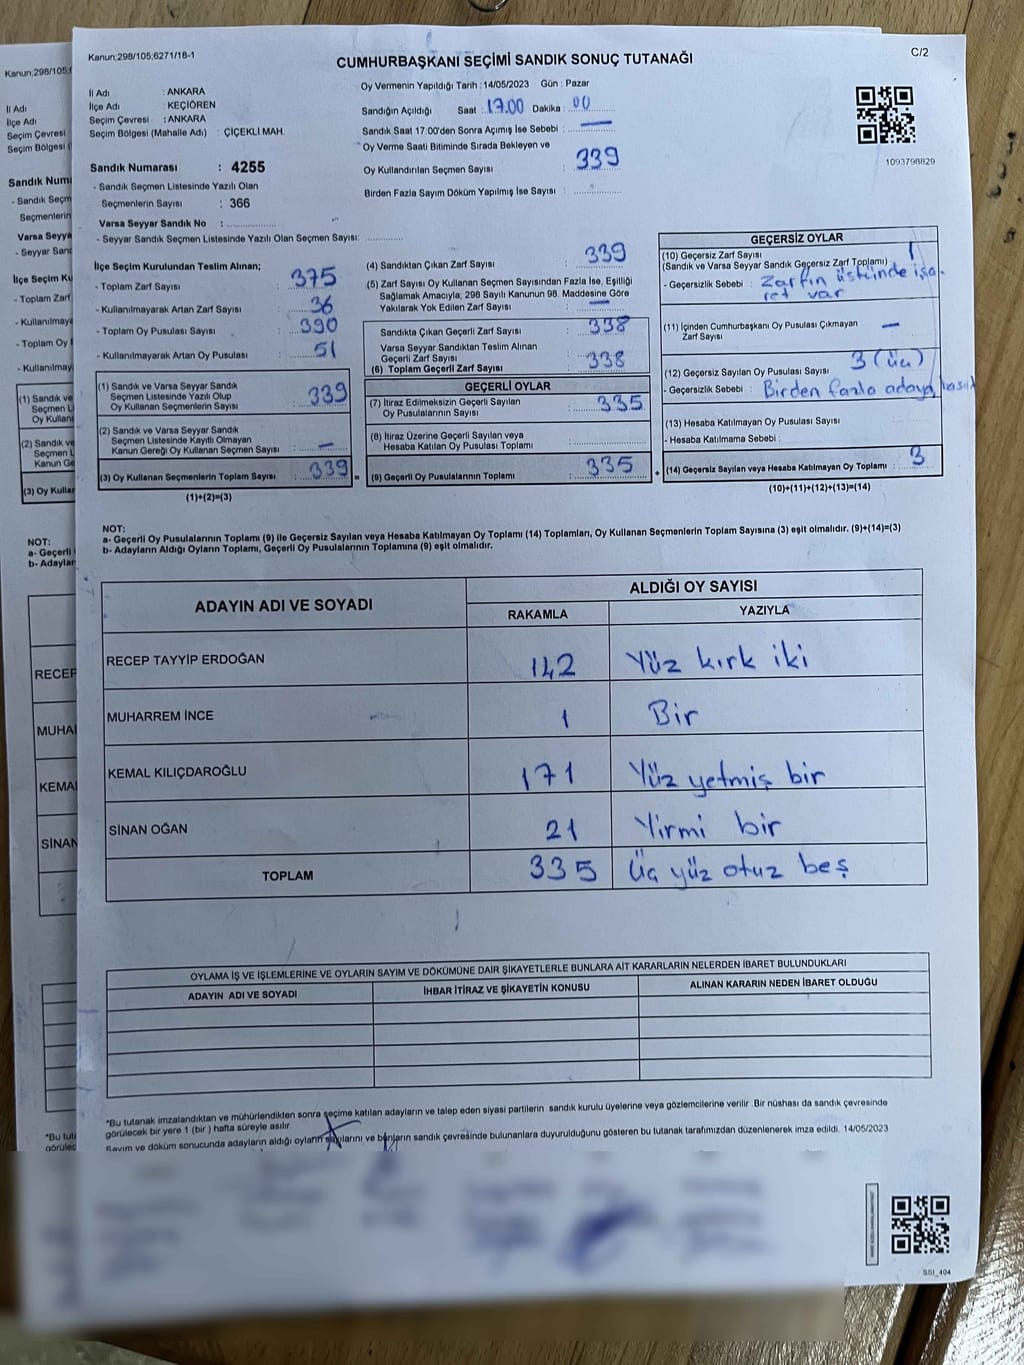 Kanun;298/105;6271/18-1
C/2
CUMHURBAŞKANI SEÇİMİ SANDIK SONUÇ TUTANAĞI
İl Adı : ANKARA
İlçe Adı : KEÇİÖREN
Seçim Çevresi : ANKARA
Seçim Bölgesi (Mahalle Adı) : ÇİÇEKLİ MAH.
Sandık Numarası : 4255
- Sandık Seçmen Listesinde Yazılı Olan
Seçmenlerin Sayısı : 366
Varsa Seyyar Sandık No :
- Seyyar Sandık Seçmen Listesinde Yazılı Olan Seçmen Sayısı:
Oy Vermenin Yapıldığı Tarih : 14/05/2023 Gün : Pazar
Sandığın Açıldığı Saat : 17.00 Dakika : 00
Sandık Saat 17:00'den Sonra Açımış İse Sebebi : —
Oy Verme Saati Bitiminde Sırada Bekleyen ve
Oy Kullandırılan Seçmen Sayısı : 339
Birden Fazla Sayım Döküm Yapılmış İse Sayısı :
1093798829
İlçe Seçim Kurulundan Teslim Alınan;
- Toplam Zarf Sayısı : 375
- Kullanılmayarak Artan Zarf Sayısı : 36
- Toplam Oy Pusulası Sayısı : 390
- Kullanılmayarak Artan Oy Pusulası : 51
(1) Sandık ve Varsa Seyyar Sandık
Seçmen Listesinde Yazılı Olup
Oy Kullanan Seçmenlerin Sayısı : 339
(2) Sandık ve Varsa Seyyar Sandık
Seçmen Listesinde Kayıtlı Olmayan
Kanun Gereği Oy Kullanan Seçmen Sayısı : —
(3) Oy Kullanan Seçmenlerin Toplam Sayısı : 339 =
(1)+(2)=(3)
(4) Sandıktan Çıkan Zarf Sayısı : 339
(5) Zarf Sayısı Oy Kullanan Seçmen Sayısından Fazla İse, Eşitliği
Sağlamak Amacıyla; 298 Sayılı Kanunun 98. Maddesine Göre
Yakılarak Yok Edilen Zarf Sayısı : —
Sandıkta Çıkan Geçerli Zarf Sayısı : 338
Varsa Seyyar Sandıktan Teslim Alınan
Geçerli Zarf Sayısı
(6) Toplam Geçerli Zarf Sayısı : 338
GEÇERLİ OYLAR
(7) İtiraz Edilmeksizin Geçerli Sayılan
Oy Pusulalarının Sayısı : 335
(8) İtiraz Üzerine Geçerli Sayılan veya
Hesaba Katılan Oy Pusulası Toplamı :
(9) Geçerli Oy Pusulalarının Toplamı : 335 +
GEÇERSİZ OYLAR
(10) Geçersiz Zarf Sayısı 1
(Sandık ve Varsa Seyyar Sandık Geçersiz Zarf Toplamı)
- Geçersizlik Sebebi : Zarfın üstünde işa-
ret var
(11) İçinden Cumhurbaşkanı Oy Pusulası Çıkmayan —
Zarf Sayısı
(12) Geçersiz Sayılan Oy Pusulası Sayısı 3 (üç)
- Geçersizlik Sebebi : Birden fazla adaya
(13) Hesaba Katılmayan Oy Pusulası Sayısı :
- Hesaba Katılmama Sebebi :
(14) Geçersiz Sayılan veya Hesaba Katılmayan Oy Toplamı : 3
(10)+(11)+(12)+(13)=(14)
NOT:
a- Geçerli Oy Pusulalarının Toplamı (9) ile Geçersiz Sayılan veya Hesaba Katılmayan Oy Toplamı (14) Toplamları, Oy Kullanan Seçmenlerin Toplam Sayısına (3) eşit olmalıdır. (9)+(14)=(3)
b- Adayların Aldığı Oyların Toplamı, Geçerli Oy Pusulalarının Toplamına (9) eşit olmalıdır.
ADAYIN ADI VE SOYADI ALDIĞI OY SAYISI
RAKAMLA YAZIYLA
RECEP TAYYİP ERDOĞAN 142 Yüz kırk iki
MUHARREM İNCE 1 Bir
KEMAL KILIÇDAROĞLU 171 Yüz yetmiş bir
SİNAN OĞAN 21 Yirmi bir
TOPLAM 335 Üç yüz otuz beş
OYLAMA İŞ VE İŞLEMLERİNE VE OYLARIN SAYIM VE DÖKÜMÜNE DAİR ŞİKAYETLERLE BUNLARA AİT KARARLARIN NELERDEN İBARET BULUNDUKLARI
ADAYIN ADI VE SOYADI İHBAR İTİRAZ VE ŞİKAYETİN KONUSU ALINAN KARARIN NEDEN İBARET OLDUĞU
*Bu tutanak imzalandıktan ve mühürlendikten sonra seçime katılan adayların ve talep eden siyasi partilerin sandık kurulu üyelerine veya gözlemcilerine verilir .Bir nüshası da sandık çevresinde
görülecek bir yere 1 (bir ) hafta süreyle asılır.
Sayım ve döküm sonucunda adayların aldığı oyların sayılarını ve bunların sandık çevresinde bulunanlara duyurulduğunu gösteren bu tutanak tarafımızdan düzenlenerek imza edildi. 14/05/2023
SSI_404